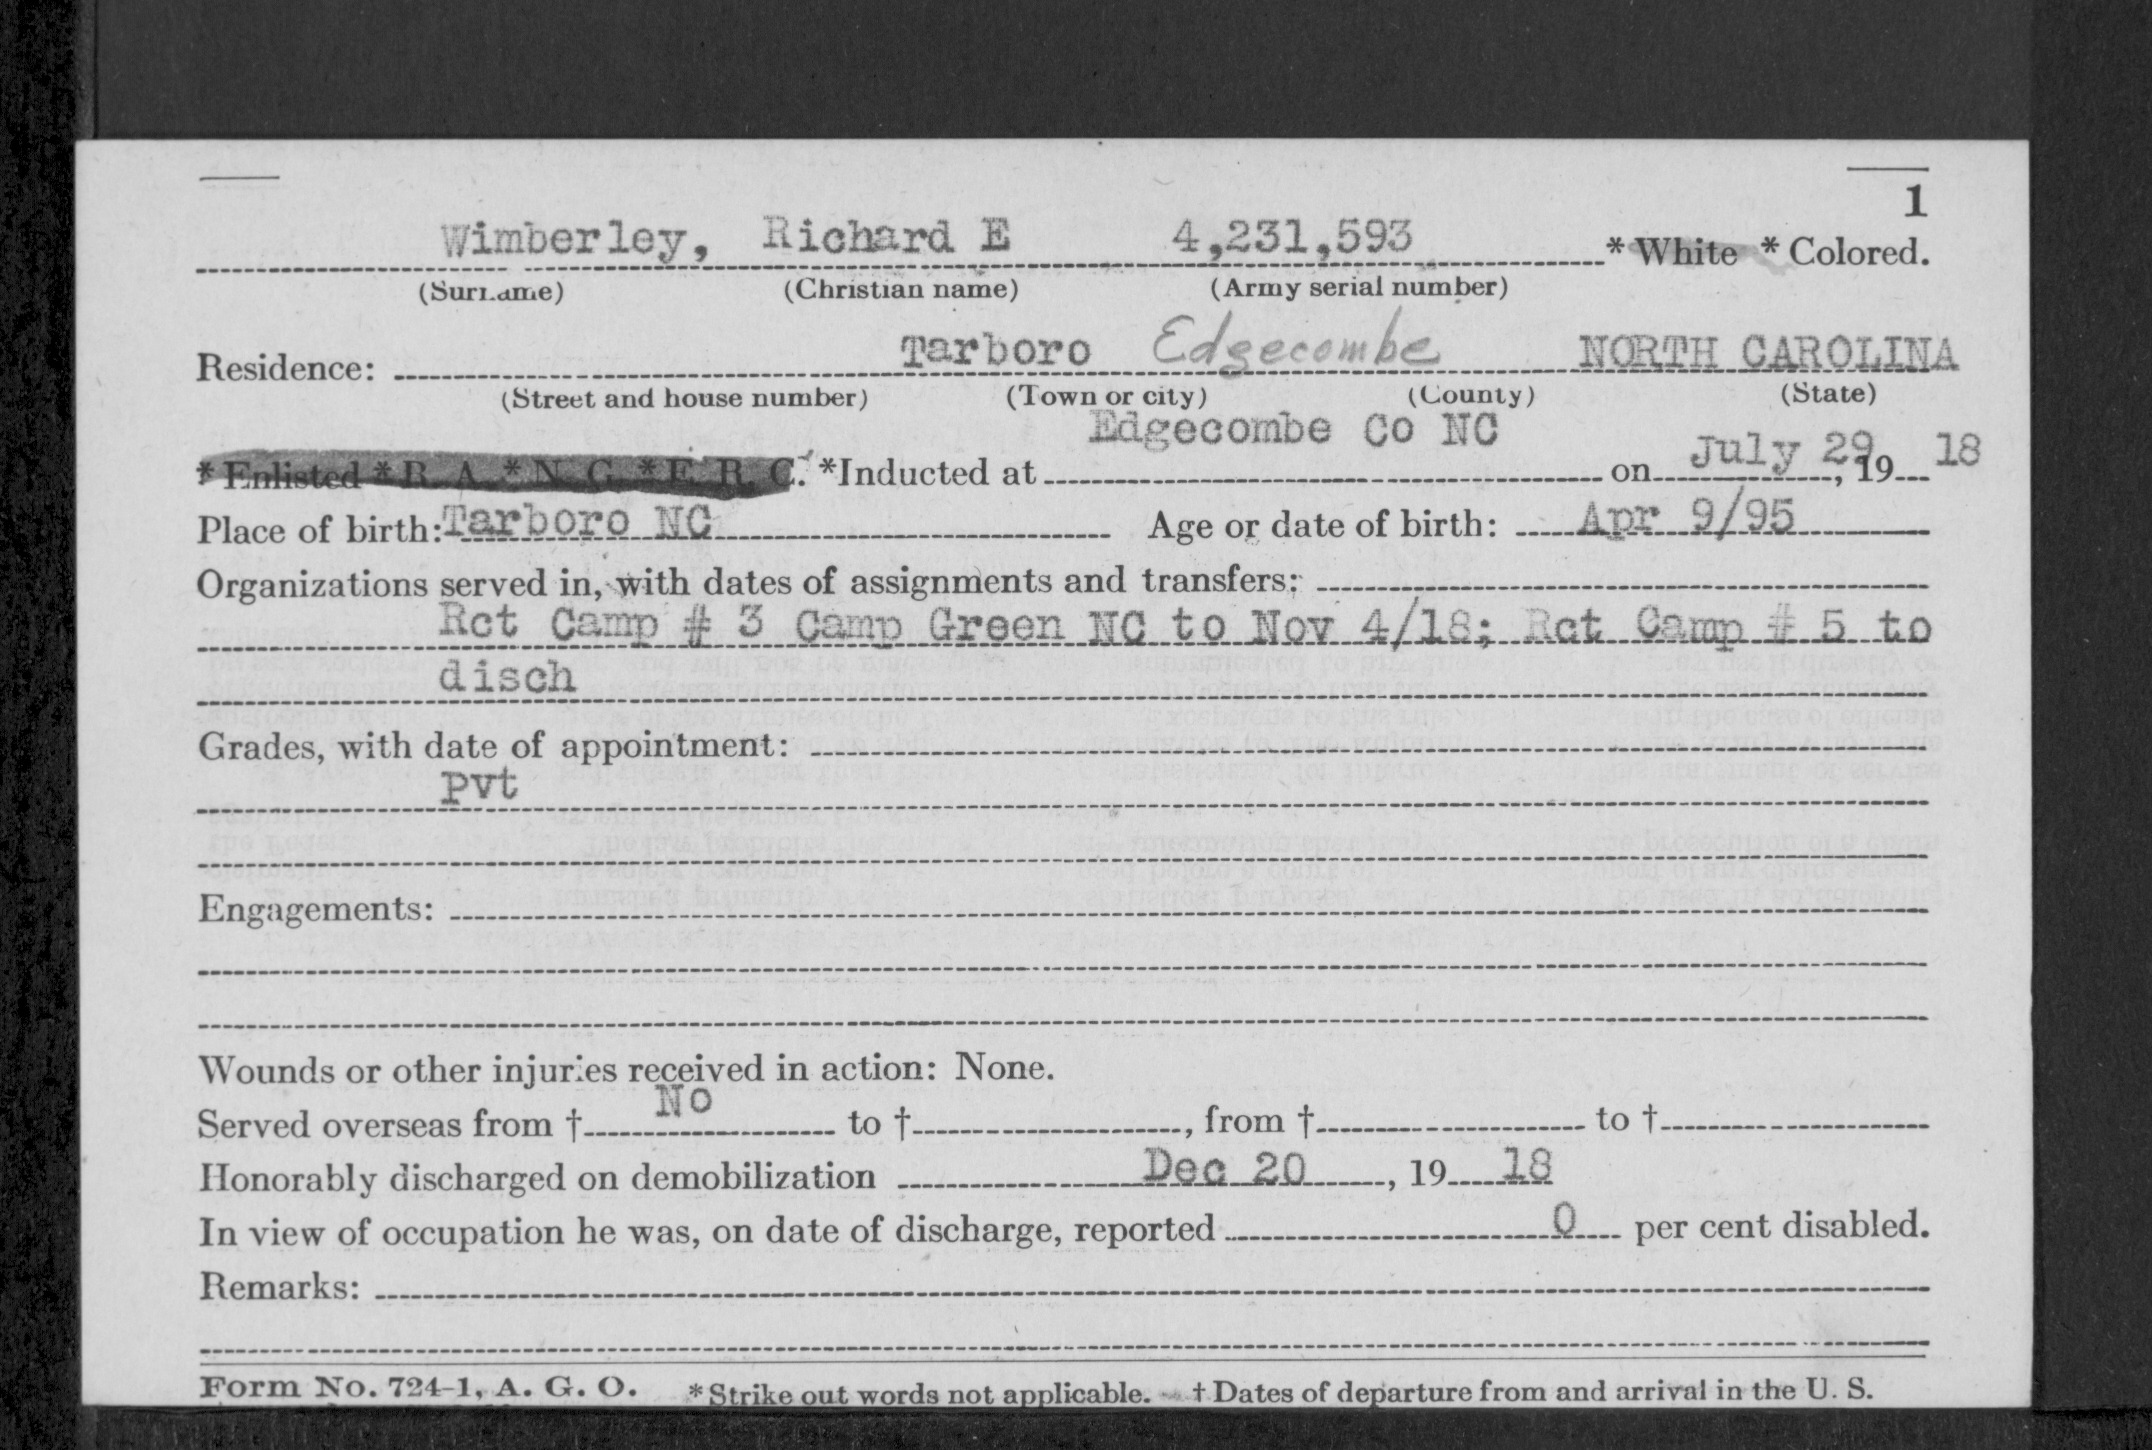 1
Wimberley, Richard E 4,231,593 * White * Colored.
(Surname) (Christian name) (Army serial number)
Residence: Tarboro Edgecombe NORTH CAROLINA
(Street and house number) (Town or city) (County) (State)
* Enlisted * R. A. * N. G. * E. R. C. *Inducted at Edgecombe Co NC on July 29, 19 18
Place of birth: Tarboro NC Age or date of birth: Apr 9/95
Organizations served in, with dates of assignments and transfers:
Rct Camp # 3 Camp Green NC to Nov 4/18; Rct Camp # 5 to
disch
Grades, with date of appointment:
Pvt
Engagements:
Wounds or other injuries received in action: None.
Served overseas from † No to †, from † to †
Honorably discharged on demobilization Dec 20, 19 18
In view of occupation he was, on date of discharge, reported 0 per cent disabled.
Remarks:
Form No. 724-1, A. G. O. * Strike out words not applicable. † Dates of departure from and arrival in the U. S.